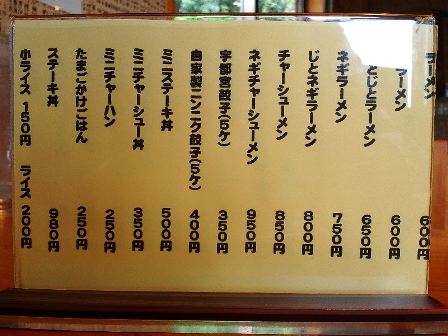 ラーメン 600円
ラーメン 600円
とじとラーメン 650円
ネギラーメン 750円
じとネギラーメン 800円
チャーシューメン 850円
ネギチャーシューメン 950円
宇都宮餃子(5ケ) 350円
自家製ニンニク餃子(5ケ) 400円
ミニステーキ丼 500円
ミニチャーシュー丼 350円
ミニチャーハン 250円
たまごかけごはん 250円
ステーキ丼 980円
小ライス 150円 ライス 200円